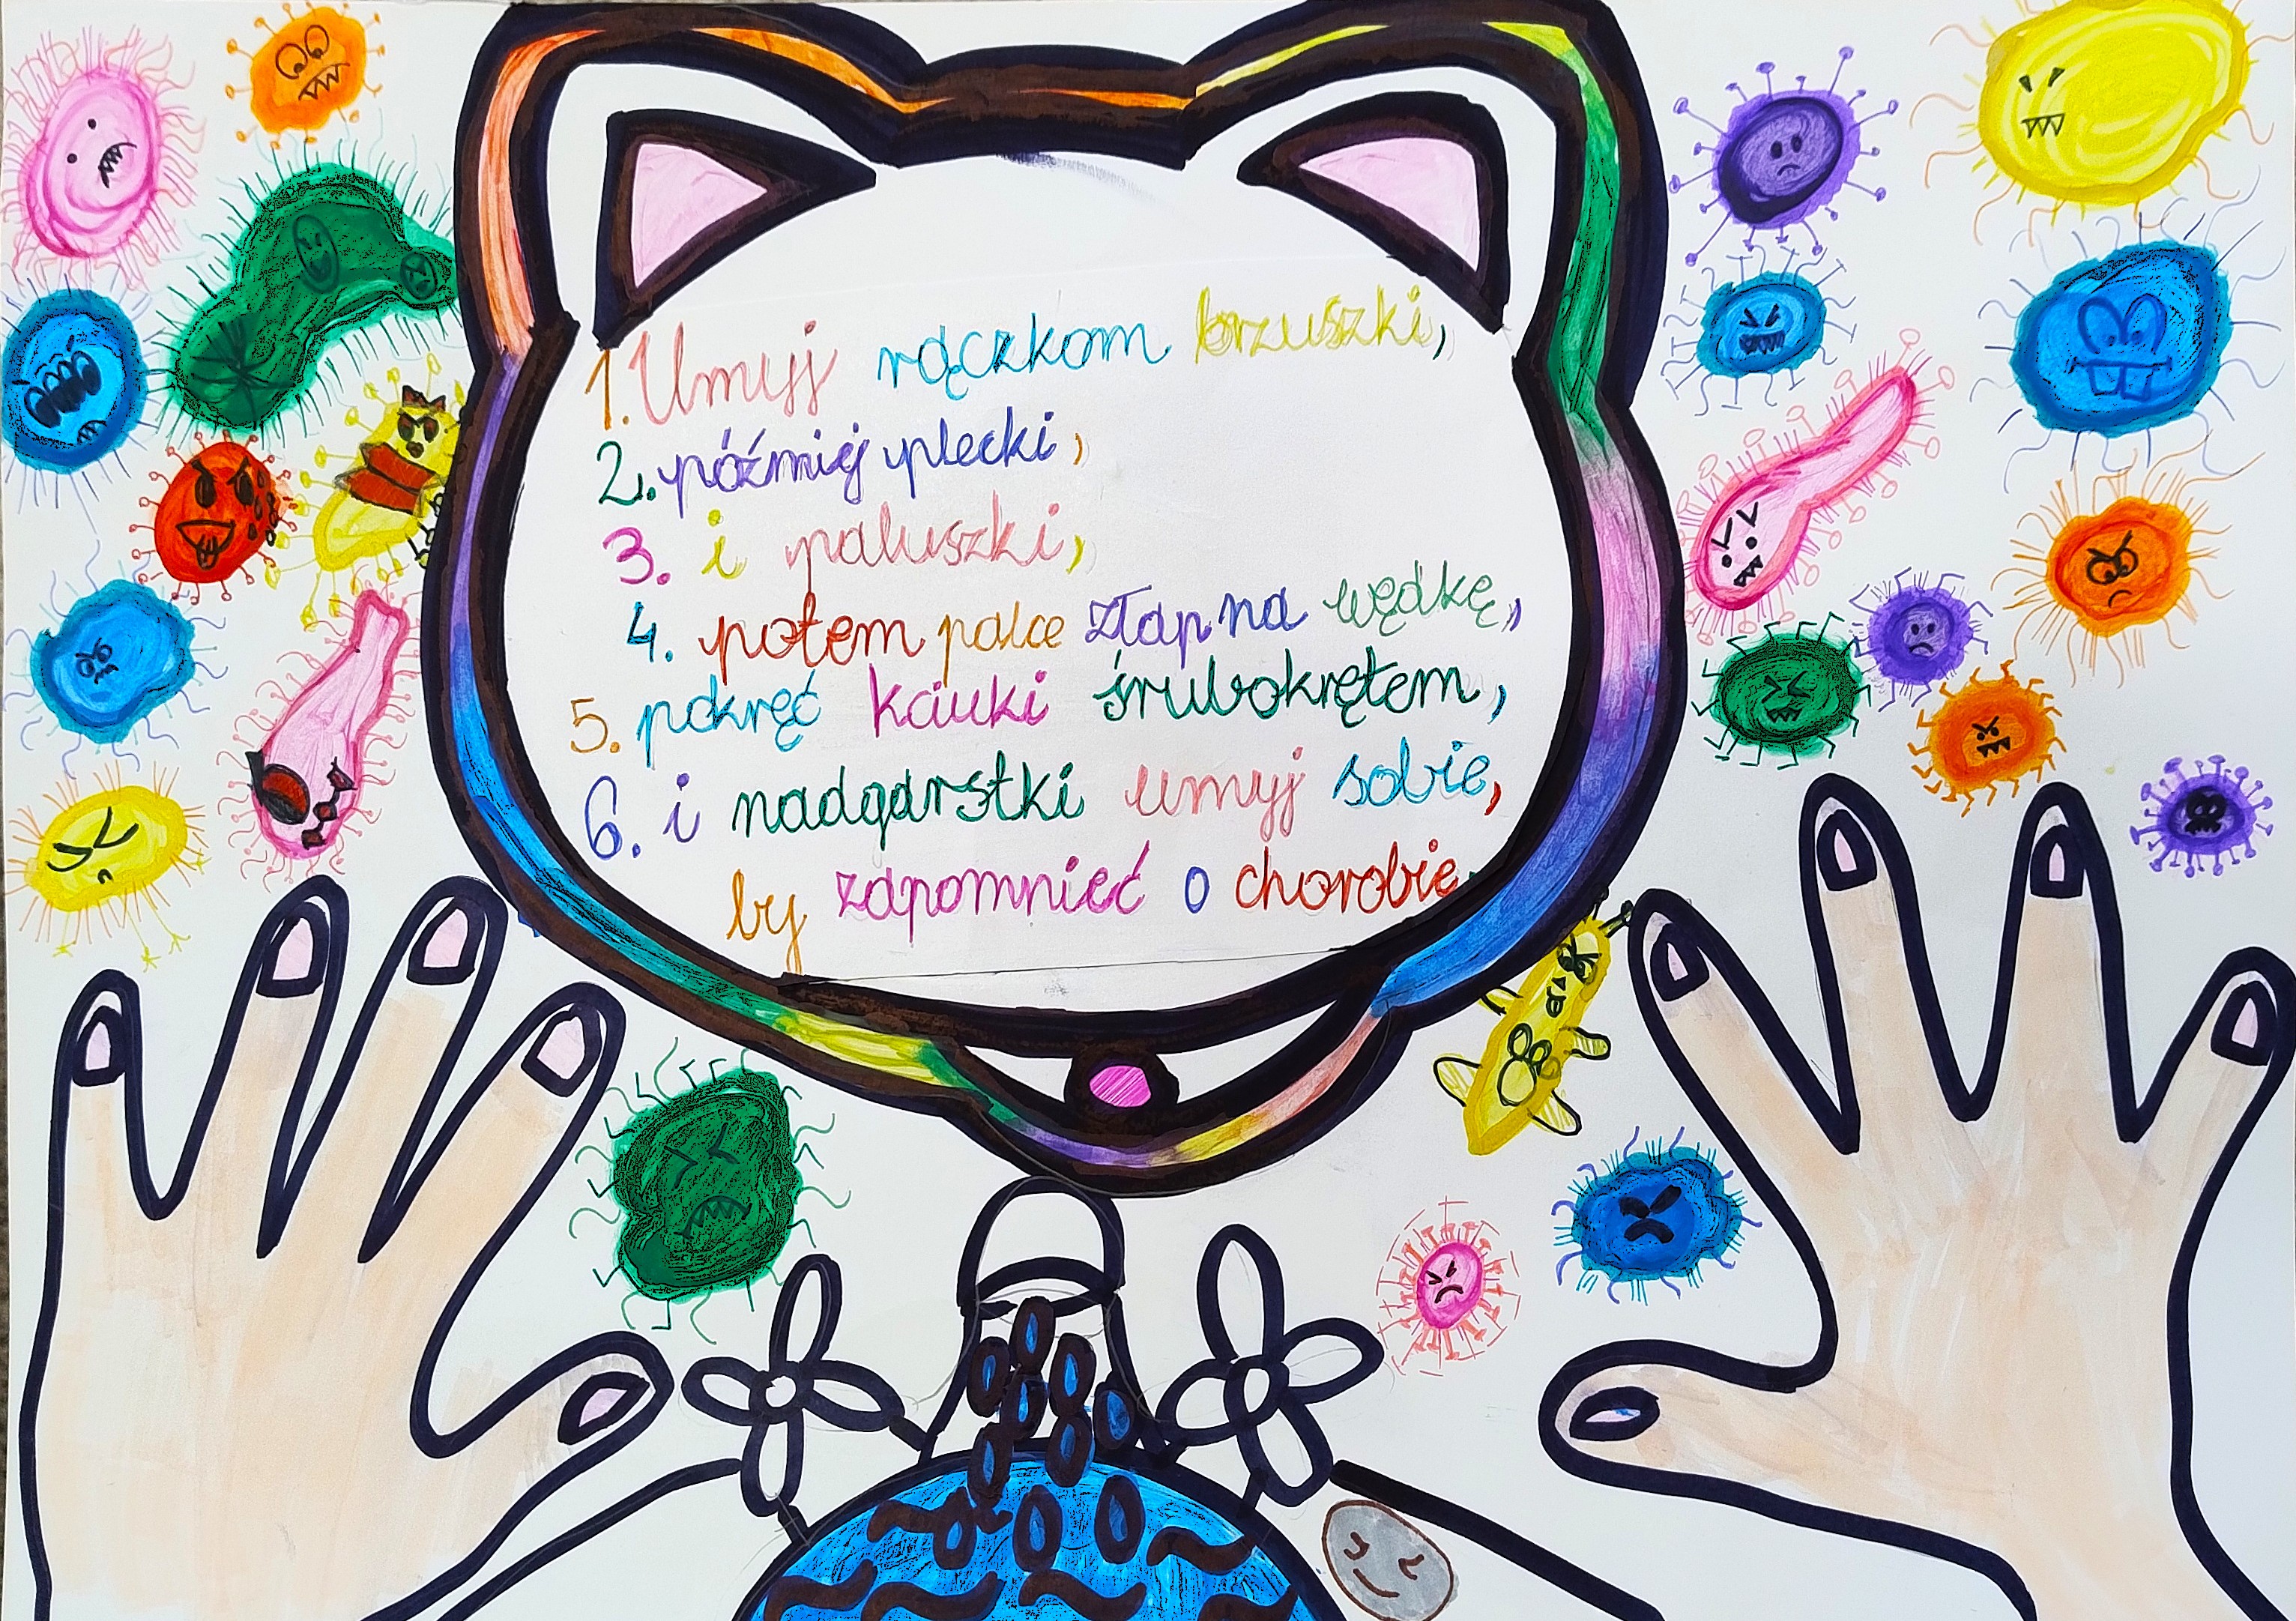 1. Umyj rączkom brzuszki,
2. później plecki,
3. i paluszki,
4. potem palce złap na wędkę,
5. pokręć kciuki śrubokrętem,
6. i nadgarstki umyj sobie,
by zapomnieć o chorobie.